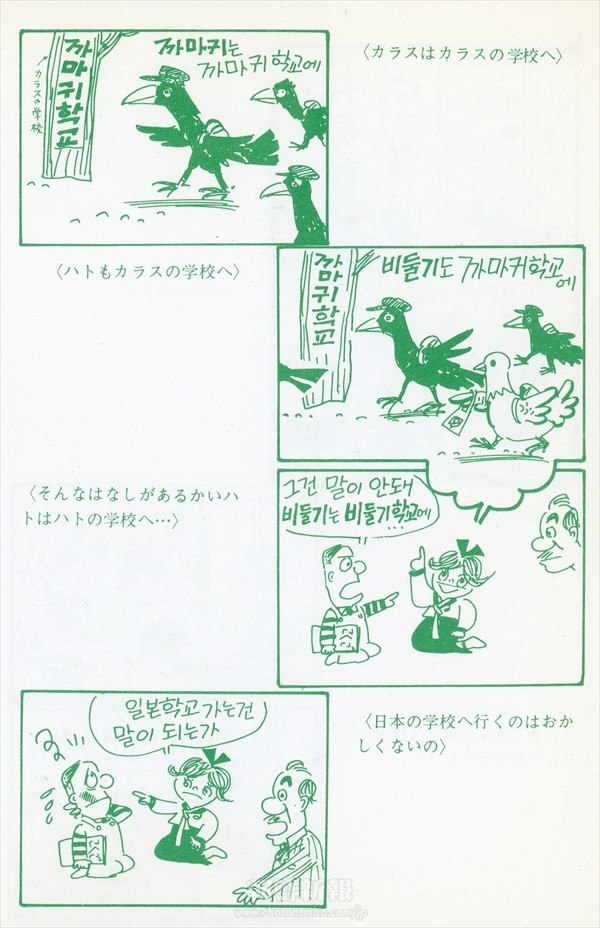 까마귀학교
カラスの学校
까마귀는
까마귀학교에
〈カラスはカラスの学校へ〉
〈ハトもカラスの学校へ〉
까마귀학교
비둘기도 까마귀학교
에
〈そんなはなしがあるかいハ
トはハトの学校へ…〉
그건 말이 안돼
비둘기는 비둘기학교에
…
일본학교가는건
말이 되는가
〈日本の学校へ行くのはおか
しくないの〉
www.chosonsinbo.com/jp